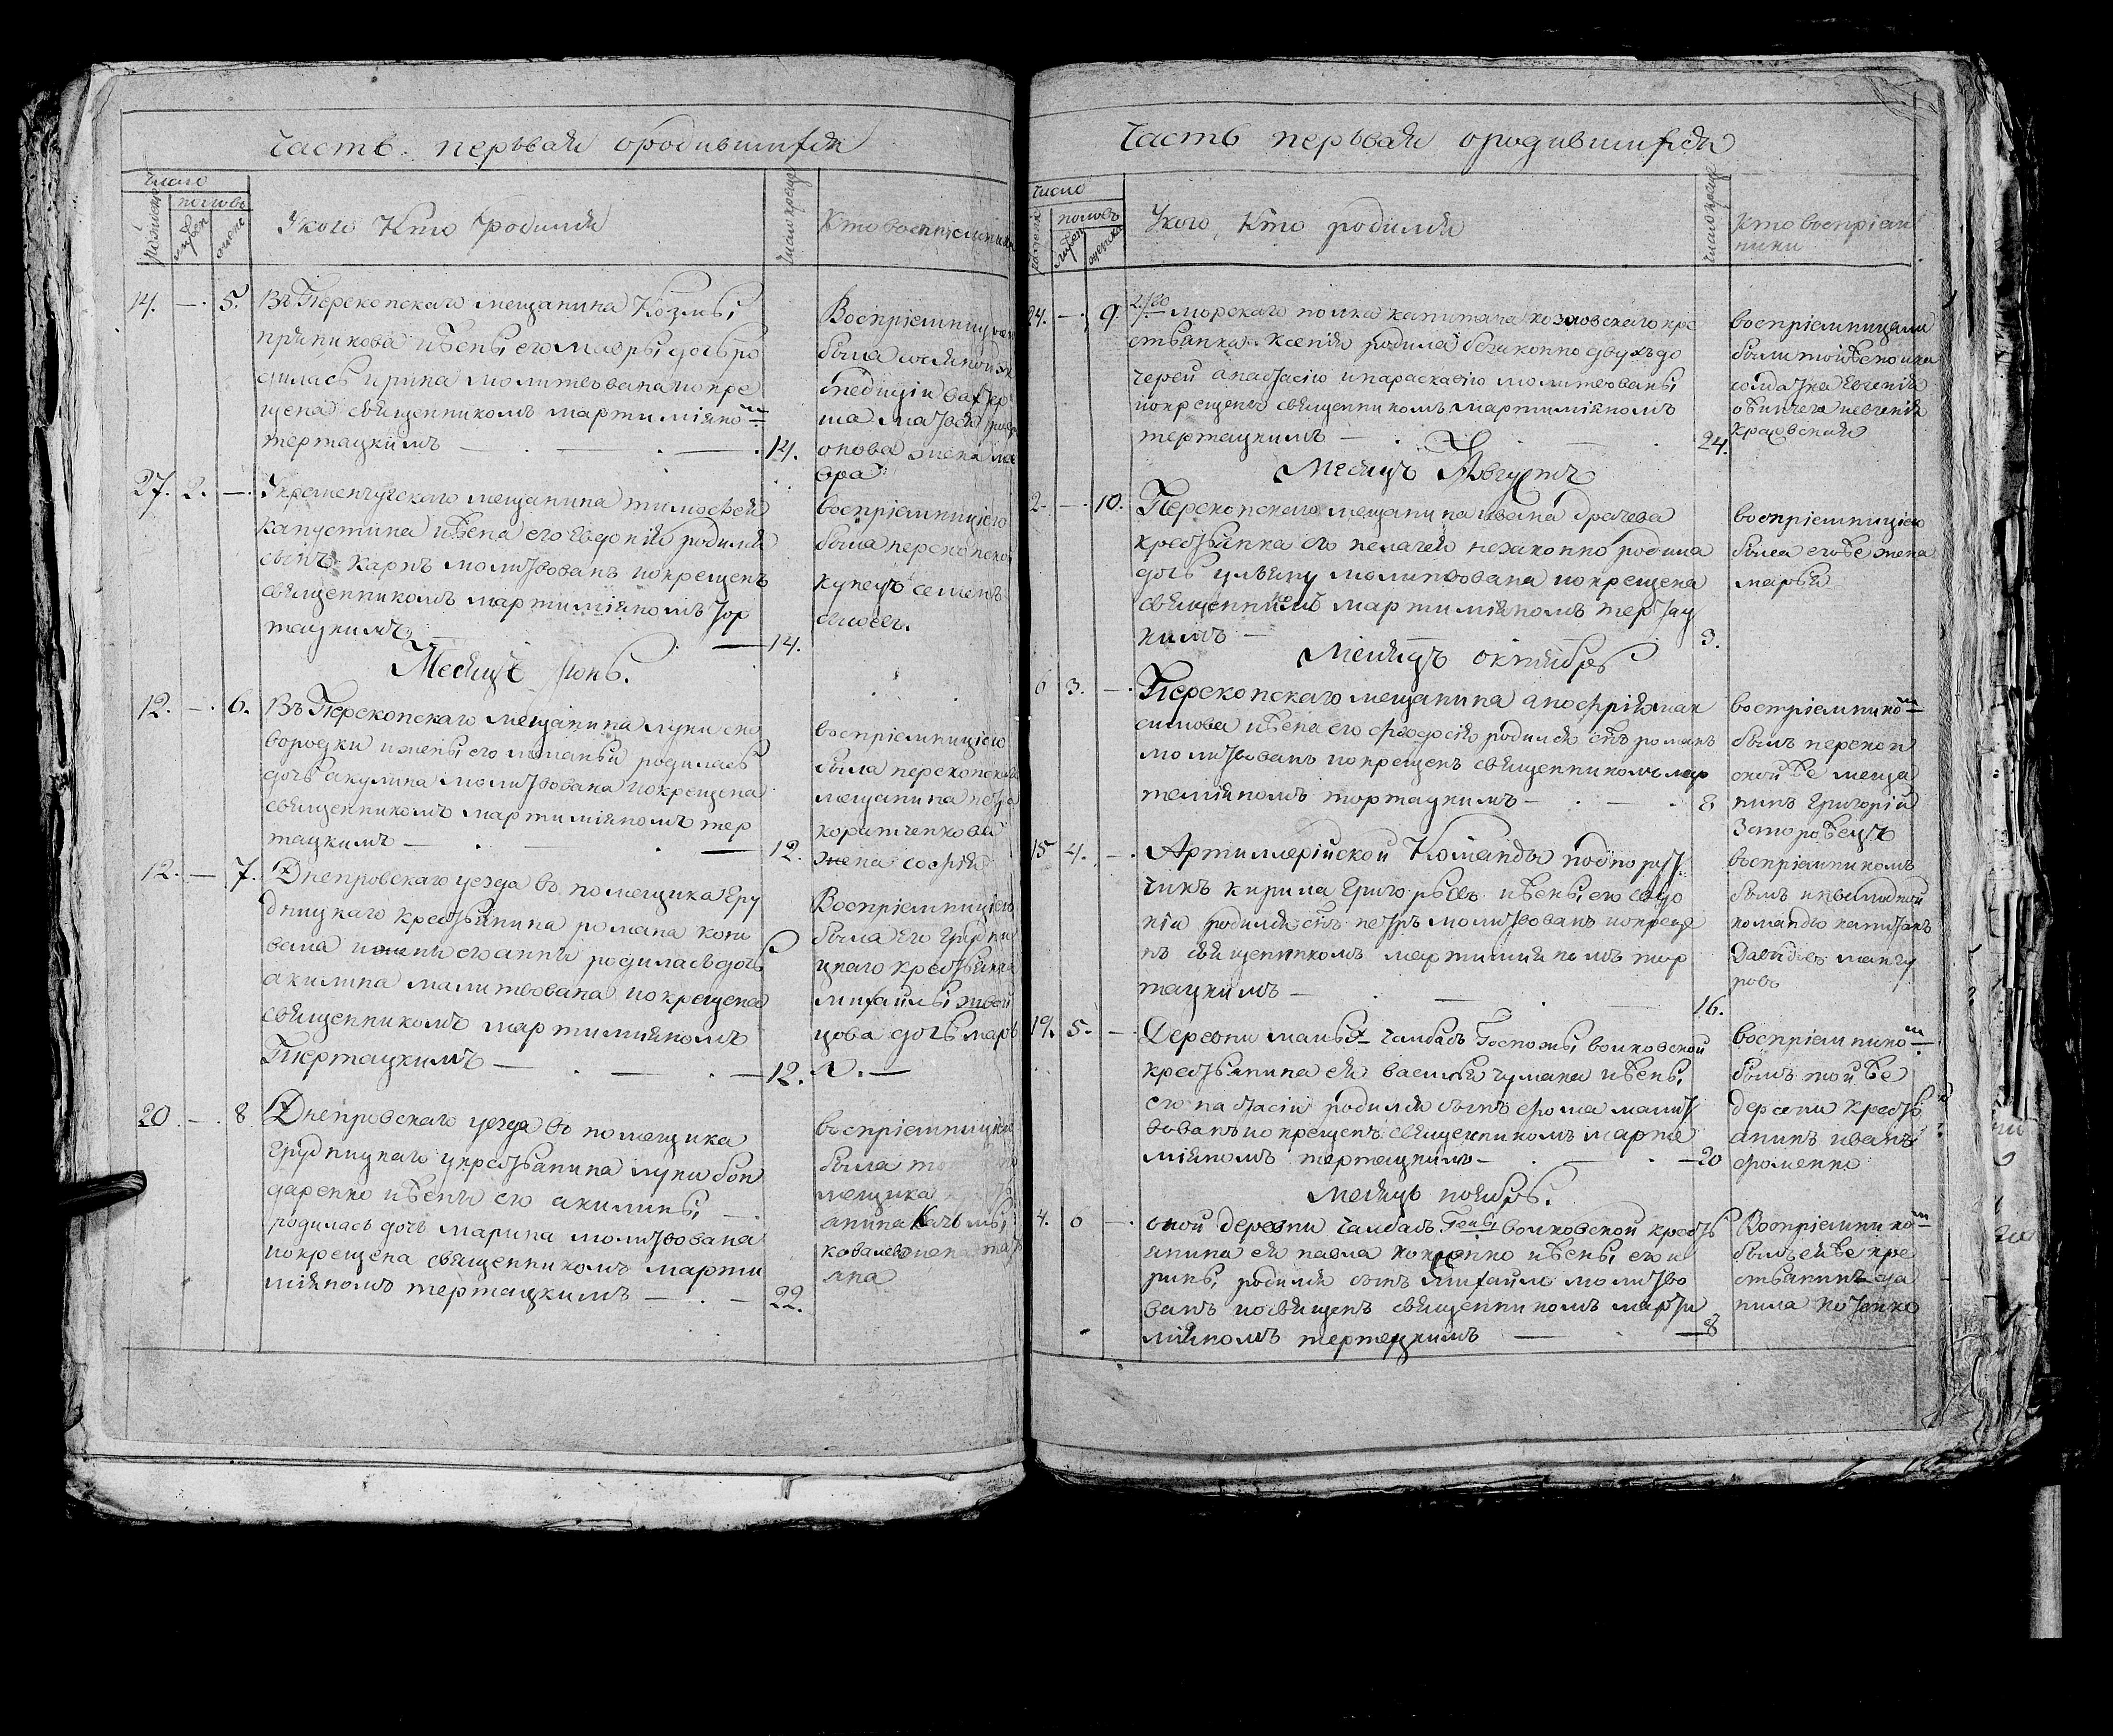 Часть первая ородившихся
Число
половъ
Укого Кто родился
Кто восприемники
14. — 5. Въ Перекопскаго мещанина Козмы
пряникова ижены его мавры дочь ро
дилась ирина молитвована и окре
щена священникомъ мартимияно
тертацкимъ — 14.
Воспріемницею
была
ша
онова жена ма
вра
27. 2. — Укременчугскаго мещанина тимофей
капустина ижена его евдокия родился
сынъ карпъ молитвованъ иокрещенъ
священникомъ мартимияномъ тор
тацкимъ — 14.
воспріемницею
была перекопской
купецъ семенъ
Месяцъ июнь.
12. — 6. Въ Перекопскаго мещанина луки ско
вородки ижены его меланьи родилась
дочь акулина молитвована иокрещена
священникомъ мартимияномъ тер
тацкимъ — 12.
воспріемницею
была перекопскаго
мещанина петра
коротченкова
жена софия
12. — 7. Днепровскаго уезда въ помещика Гру
дницкаго крестьянина романа кова
вала ижены его анны родилась дочь
акилина малитвована иокрещена
священникомъ мартимияномъ
Тпертацкимъ — 12.
Воспріемницею
была его Грудни
цкаго крестьянина
михаилы
цова дочь марь
я. —
20 — 8 Днепровскаго уезда въ помещика
Грудницкаго укрестьянина луки бон
даренко ижены его акилины
родилась дочь марина молитвована
иокрещена священникомъ марти
мияномъ тертацкимъ — 22.
воспріемницею
была
мещика
анина
ковалева жена тать
яна
Часть первая ородившихся
Число
половъ
Укого Кто родился
Кто воспріем
ники
24. — 9. морскаго полка капитана козловскаго кре
стьянка ксения родила безаконно двухъ до
черей анастасию ипараскавию молитвованы
иокрещены священникомъ мартимияномъ
тертацкимъ — 24.
воспріемницами
были тойже полка
солдатка евгения
краевская
Месяцъ Августъ
2. — 10. Перекопскаго мещанина ивана драчева
крестьянка его пелагея незаконно родила
дочь ульяну молитвована иокрещена
священникомъ мартимияномъ тертац
кимъ — 3.
воспріемницею
была егоже жена
марья
Месяцъ октябрь
6 3. — Перекопскаго мещанина анофрия мак
симова ижена его феодосия родился снъ романъ
молитвованъ иокрещенъ священникомъ мар
темияномъ тортацкимъ — 8
воспріемнико
былъ перекоп
скойже меща
нинъ Григорий
Запорожецъ
15 4. — Артиллерійской Команды подпорут
чикъ кирила Григорьевъ ижены его евдо
кіи родился снъ петръ молитвованъ иокреще
нъ священникомъ мартимияномъ тер
тацкимъ — 16.
воспріемникомъ
былъ инвалидной
команды капитанъ
Давидовъ мангу
ровъ
19. 5. — Деревни Чамбалъ Госпожи волковской
крестьянина ея василия чумака ижены
его настасіи родился сынъ фома молит
вованъ иокрещенъ священникомъ марти
мияномъ тертацкимъ — 20
воспріемнико
былъ тойже
деревни кресть
анинъ иванъ
фоменко
Месяцъ ноябрь.
4. 6 — оной деревни Чамбалъ Гспжи волковской кресть
янина ея павла ижены его и
рины родился сынъ Михаилъ молитво
ванъ иосвященъ священникомъ марти
мияномъ тертецкимъ — 8
Воспріемнико
былъ ейже кре
стьанинъ да
нила